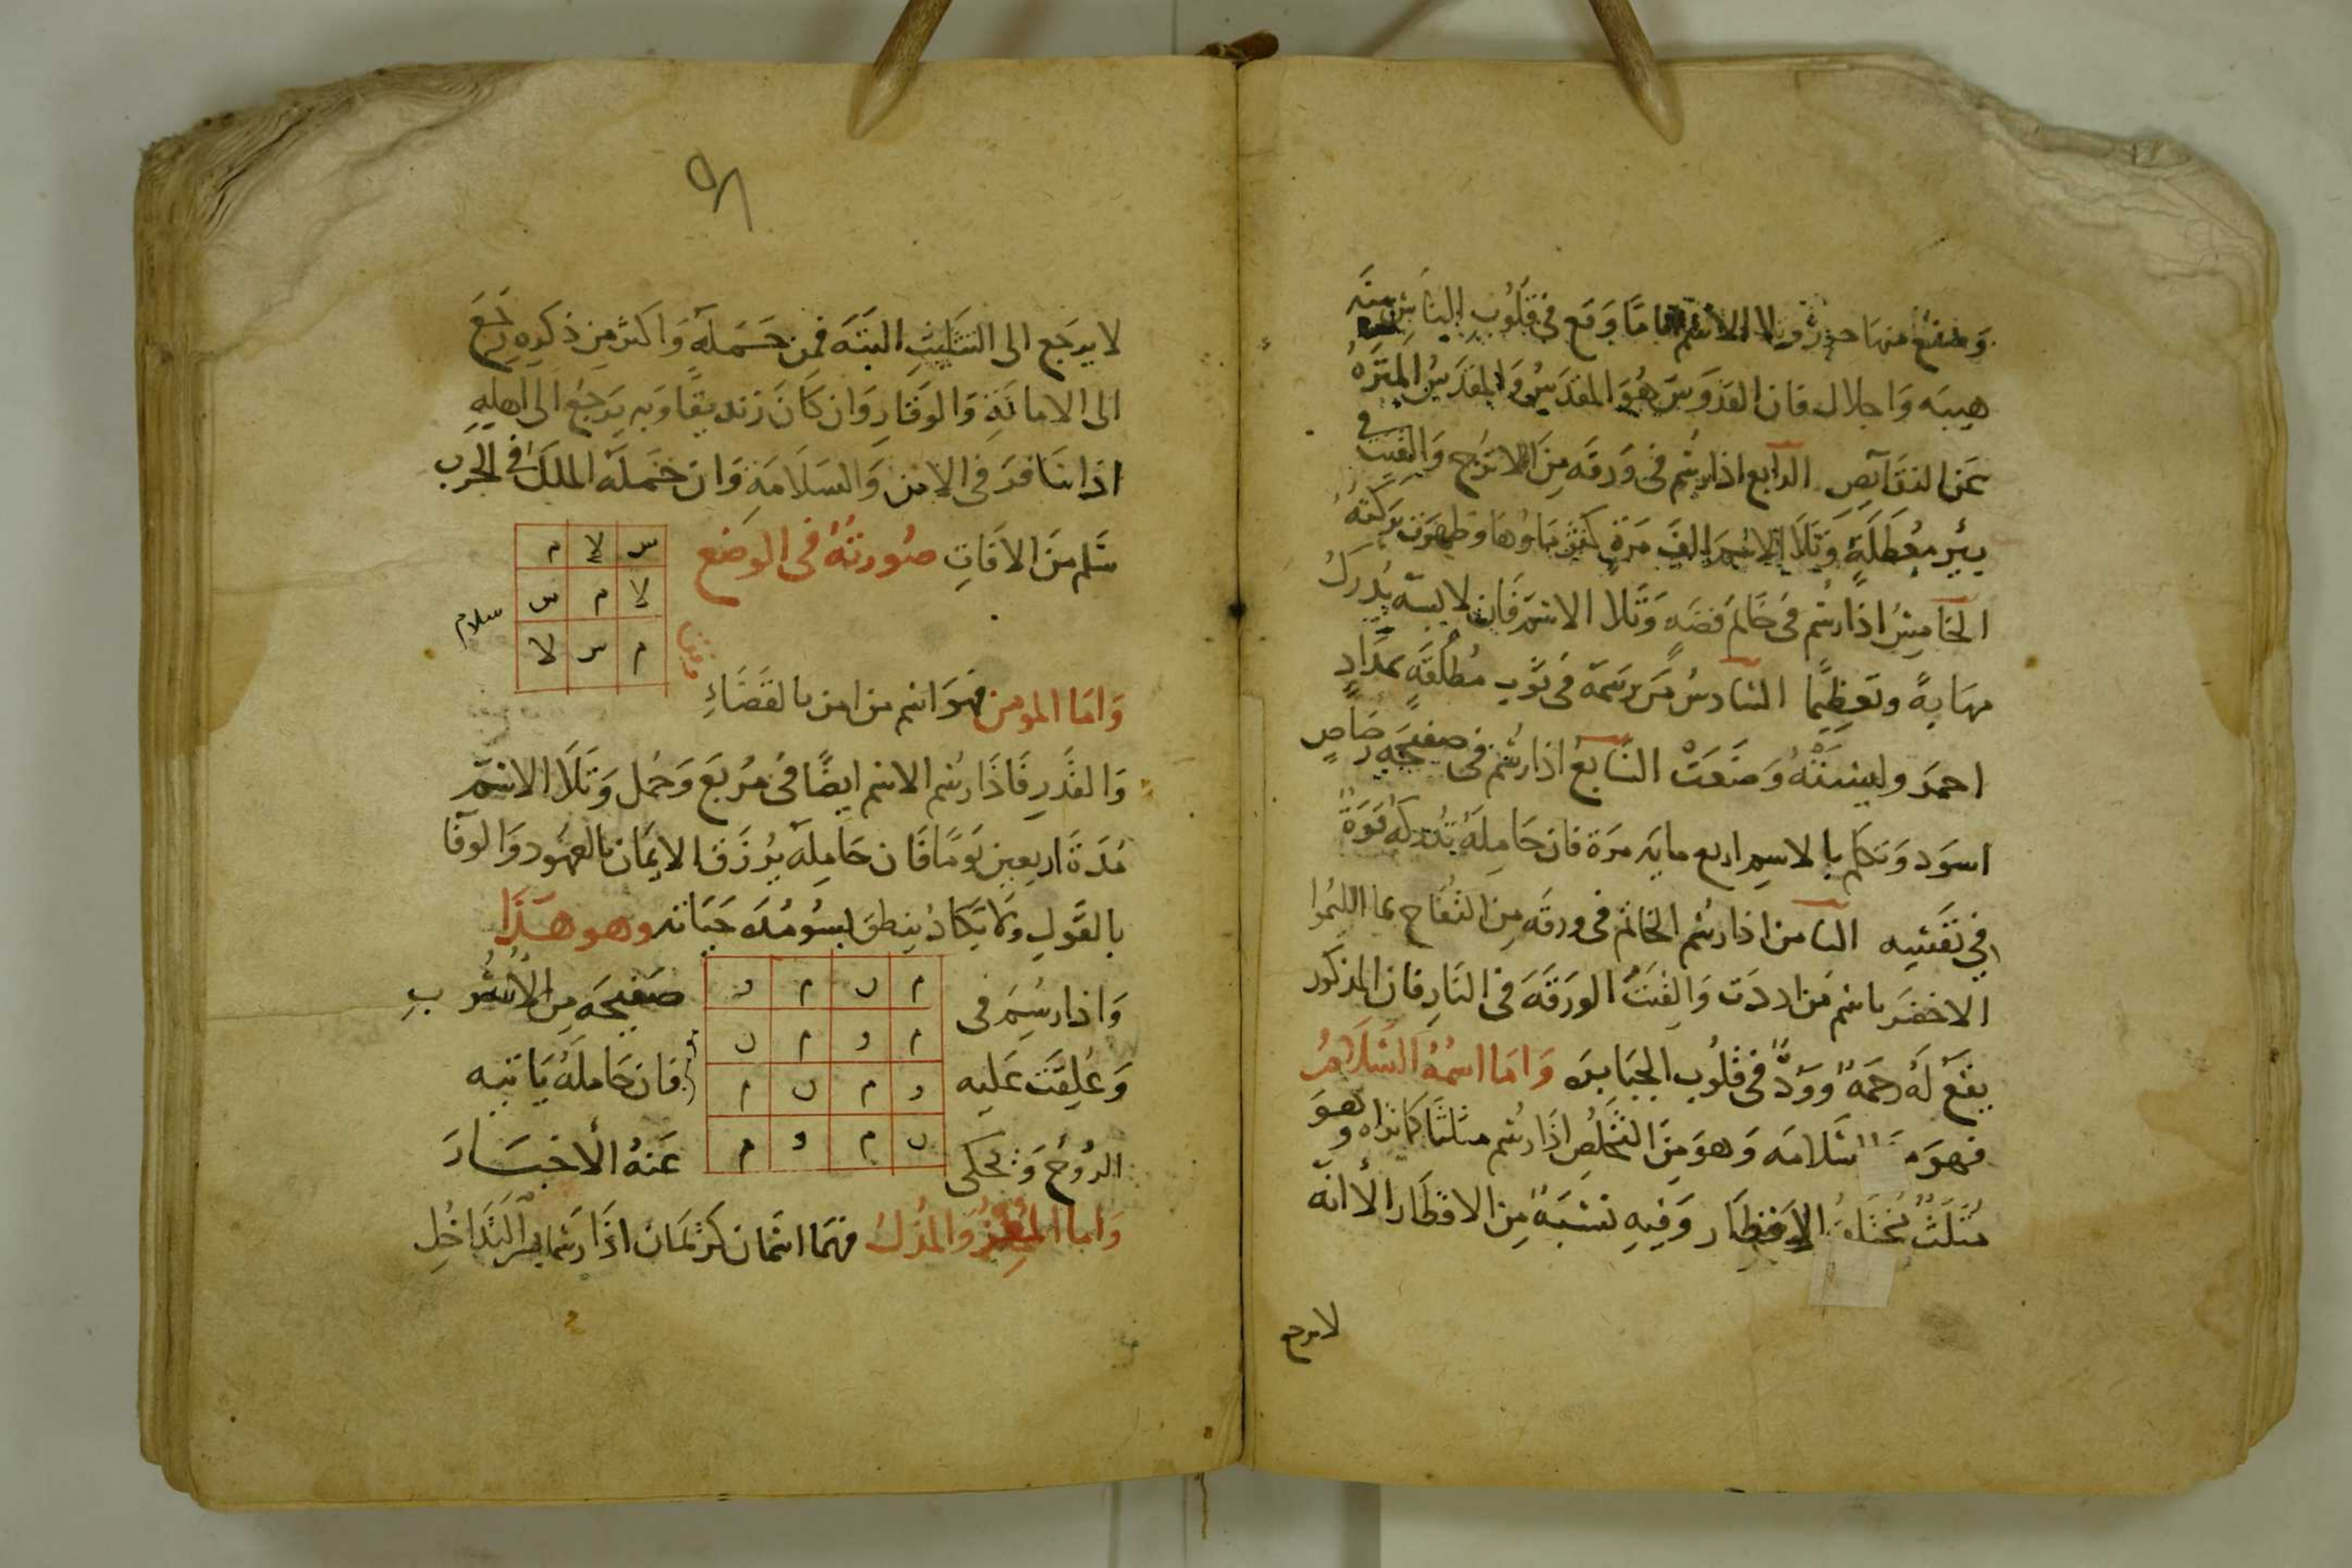 وصنع منها حورة وتلا الاسم اياما وقع في قلوب الناس منه
هيبه وَاجلال فان القدوسَ هُوَ المقدسُ وَالمقدسُ المنزهُ
عَن النقآيصِ الرابع اذا رسُم في وَرقه مِنَ الاترج وَالقيت في
بيرٍ معُطلةٍ وَتلَا الاسمَ الف مَرةٍ كثر ماوُها وَظهرت بركته
الخامِسُ اذا رسُم فى خَاتم فضهٍ وَتلا الاسَم فَان لابسَه يُدركُ
مهَابةً وتعَظِيمًا السَادسُ مَن رَسَمَه فى ثوبِ مطُلقةٍ بمدَادٍ
احمرَ ولبِسَتْهُ وَضَعَتْ السَابعُ اذا رسُم فى صفيحَه رصَاصٍ
اسوَد وَتكلم بالاسمِ اربع مايه مرَة فان حَامِلهَ تدركه قوَةٌ
في نفَسِه الثامن اذا رسُم الخاتم فى ورقَه مِن التفاح بما الليمُوا
الاخضَر باسم مَن اردَت وَالقيَت الورَقَه فى النَارِ فان المذكور
يقعَ لهَ رحمَةٌ ووَدٌ فى قلوُب الجبَابرَه وَامَا اسمُهُ السَلَامُ
فهوَ السَلامَه وَهوَ مِنَ التخلصِ اذا رسُم مثلثًا كما تراه وهوَ
مُثلَثٌ الاقطَار وَفيهِ نسبَةٌ مِن الاقطَار الا انَه
لا يرجع
٩٨
لا يرجَع الى التثليثِ البتَه فمن حَمَله وَاكثر مِن ذكرِه رجَع
الى الامانَةِ وَالوقارِ وَان كَانَ زنديقًا وَبه يرَجعُ الى اهلِهِ
اذا سَافرَ فى الامنِ وَالسَلَامَةِ وَان حَملَه الملكَ فى الحرب
سَلم مِنَ الافاتِ صُورتهُ فى الوضع
س لا م
لا م س
م س لا
سلام
وَامَا المومن فهوَ اسم من امن بالقضَاءِ
وَالقدَرِ فَاذَا رسُم الاسم ايضًا فى مرُبَع وَحمُل وَتلَا الاسَم
مُدَةَ اربعِين يَومًا فَان حَامِله يرُزَق الايمَان بالعهوُد وَالوفَا
بالقَولِ ولَا يكَادُ ينطق بسُو مُدَة حيَاته وهو هَذَا
م ن م و
م و م ن
و م ن م
ن م و م
وَاذا رسُمَ فى صَفيحَه مِن الاسُرُبِ
وَعُلِقَت عَليه فان حَامِلَهُ يَاتيه
الرُوحُ وَتحكى عَنهُ الاخبَارَ
وَاما المُعِزُ وَالمُذِل فهُمَا اسمَان كريمَان اذا رسُما بسِر التدَاخُلِ